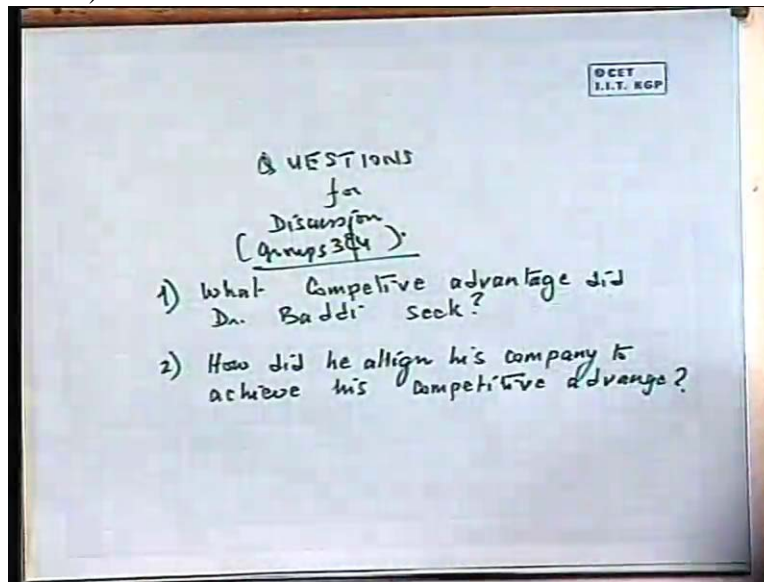 © CET
I.I.T. KGP
QUESTIONS
for
Discussion
(groups 3&4).
1) What Competive advantage did
Dr. Baddi seek?
2) How did he allign his company to
achieve his competitive advange?